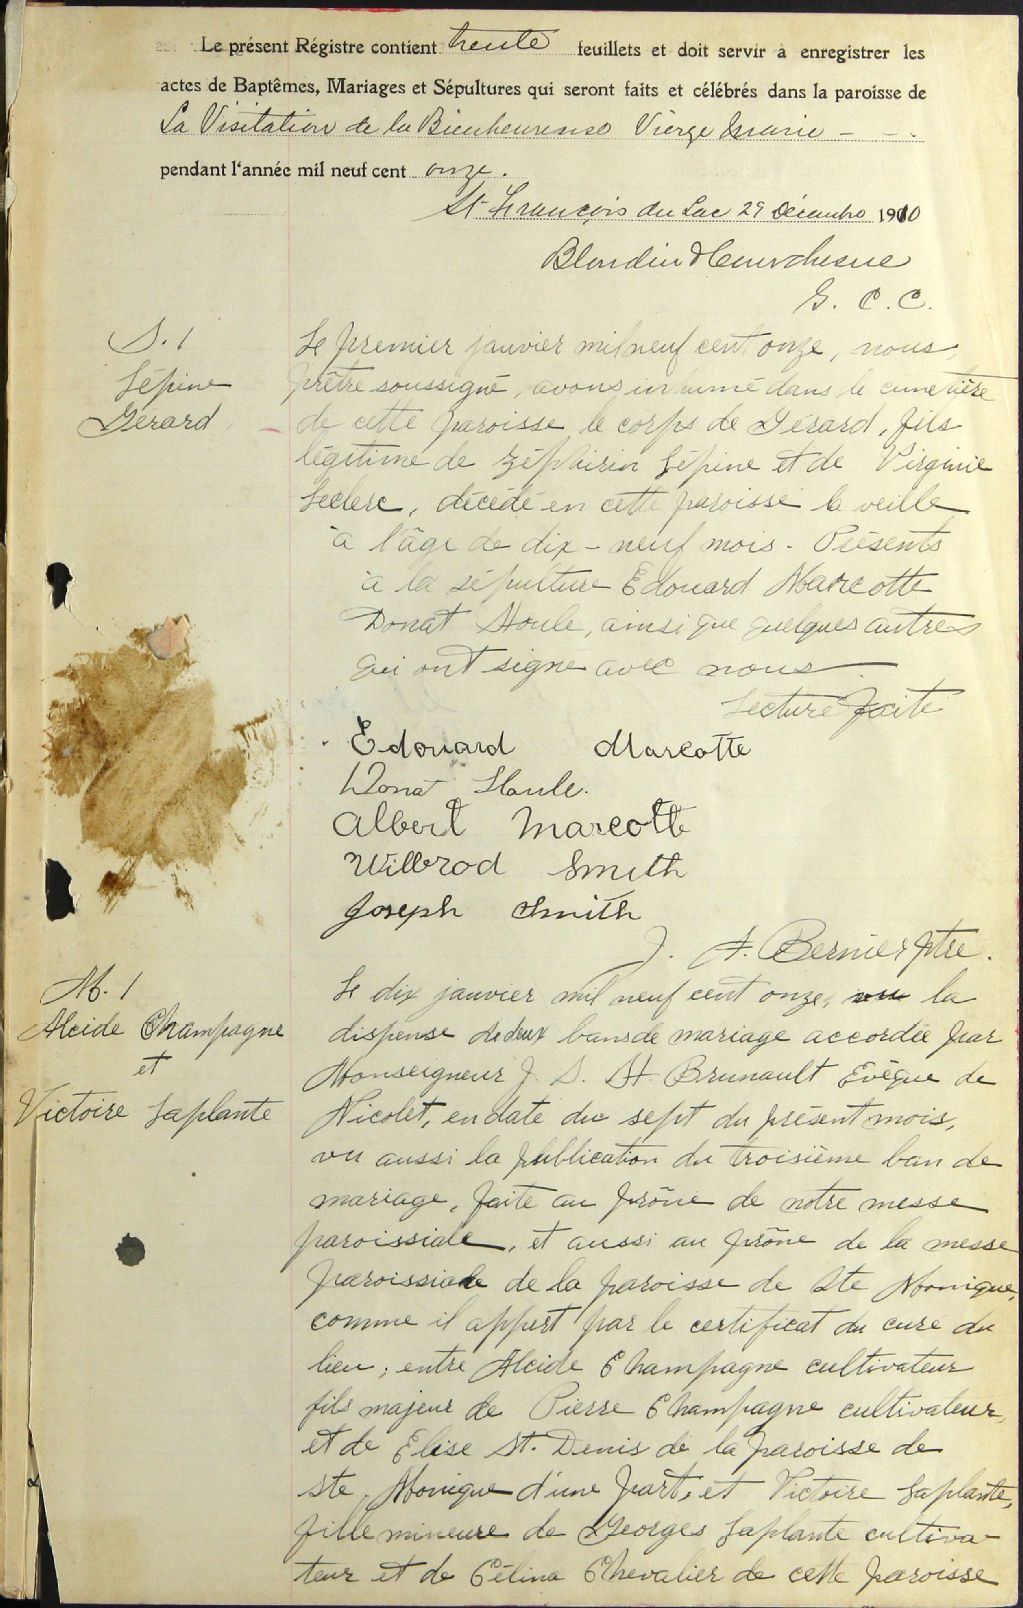 Le présent Régistre contient trente feuillets et doit servir à enregistrer les
actes de Baptêmes, Mariages et Sépultures qui seront faits et célébrés dans la paroisse de
La Visitation de la Bienheureuse Vierge Marie - - -
pendant l'année mil neuf cent onze.
St François du Lac 29 Décembre 1910
Blondin
G. C. C.
S. 1
Lépine
Gérard
Le premier janvier mil neuf cent onze, nous,
prêtre soussigné, avons inhumé dans le cimetière
de cette paroisse le corps de Gérard, fils
légitime de Zéphirin Lépine et de Virginie
Leclerc, décédé en cette paroisse la veille
à l'âge de dix-neuf mois. Présents
à la sépulture Edouard Marcotte
Donat Houle, ainsi que quelques autres
qui ont signé avec nous.
Lecture faite
Edouard Marcotte
Donat Houle.
Albert Marcotte
Willbrod Smith
Joseph Smith
J. A. Bernier ptre.
M. 1
Alcide Champagne
et
Victoire Laplante
Le dix janvier mil neuf cent onze, vu la
dispense de deux bans de mariage accordée par
Monseigneur J. S. H. Brunault Evêque de
Nicolet, en date du sept du présent mois,
vu aussi la publication du troisième ban de
mariage, faite au prône de notre messe
paroissiale, et aussi au prône de la messe
paroissiale de la paroisse de Ste Monique,
comme il appert par le certificat du curé du
lieu; entre Alcide Champagne cultivateur
fils majeur de Pierre Champagne cultivateur,
et de Elise St. Denis de la paroisse de
Ste. Monique d'une part, et Victoire Laplante,
fille mineure de Georges Laplante cultiva-
teur et de Célina Chevalier de cette paroisse